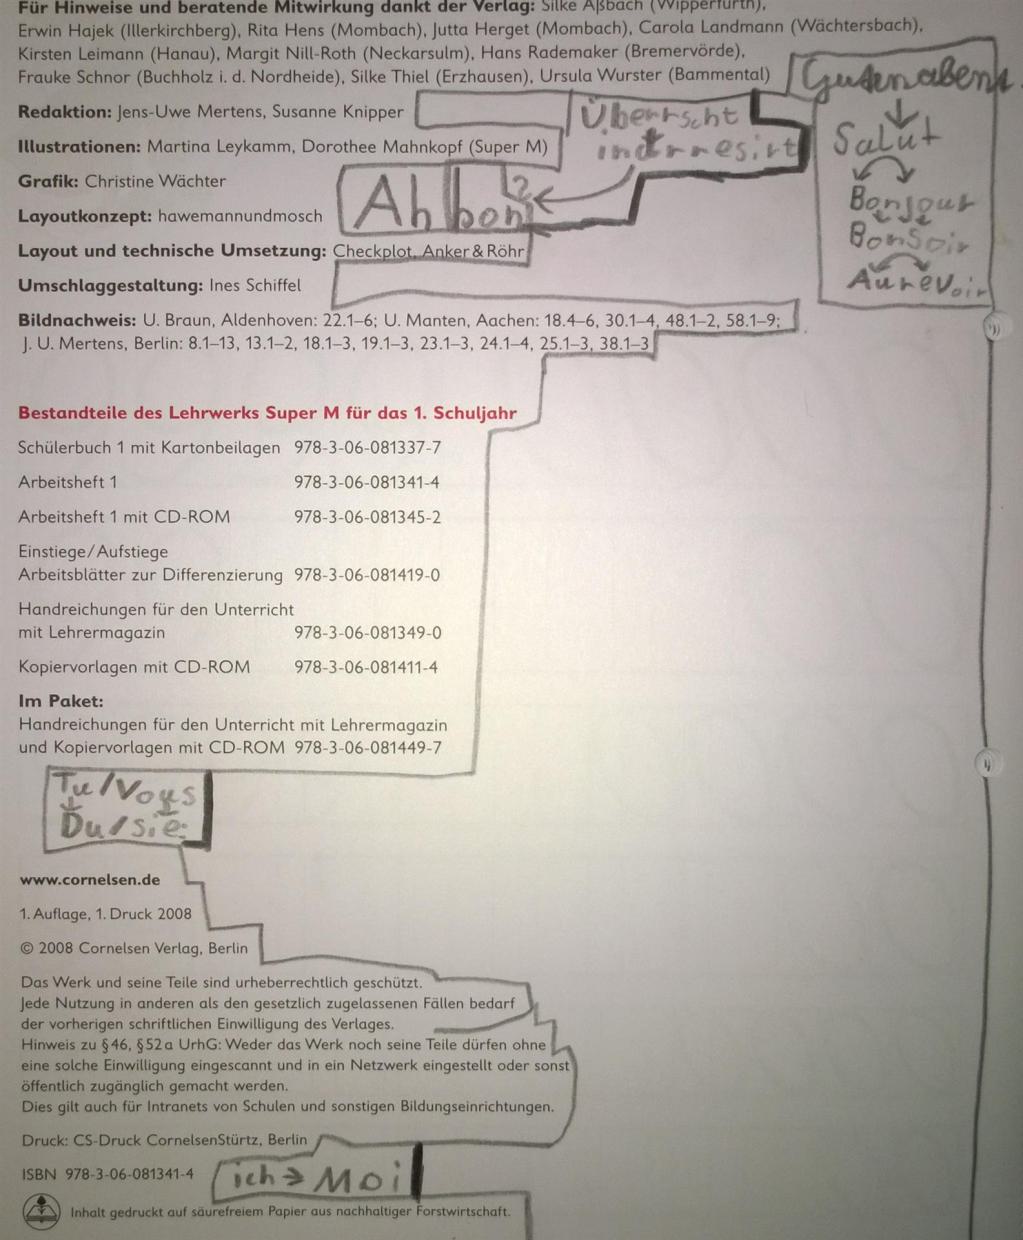 Für Hinweise und beratende Mitwirkung dankt der Verlag: Silke Aßbach (Wipperfürth),
Erwin Hajek (Illerkirchberg), Rita Hens (Mombach), Jutta Herget (Mombach), Carola Landmann (Wächtersbach),
Kirsten Leimann (Hanau), Margit Nill-Roth (Neckarsulm), Hans Rademaker (Bremervörde),
Frauke Schnor (Buchholz i. d. Nordheide), Silke Thiel (Erzhausen), Ursula Wurster (Bammental)
Gutenabent
Redaktion: Jens-Uwe Mertens, Susanne Knipper
Überrscht
Salut
Illustrationen: Martina Leykamm, Dorothee Mahnkopf (Super M)
indrresirt
Grafik: Christine Wächter
Ah bon?
Bonjour
Layoutkonzept: hawemannundmosch
Bonsoir
Layout und technische Umsetzung: Checkplot, Anker & Röhr
Aurevoir
Umschlaggestaltung: Ines Schiffel
Bildnachweis: U. Braun, Aldenhoven: 22.1–6; U. Manten, Aachen: 18.4–6, 30.1–4, 48.1–2, 58.1–9;
J. U. Mertens, Berlin: 8.1–13, 13.1–2, 18.1–3, 19.1–3, 23.1–3, 24.1–4, 25.1–3, 38.1–3
Bestandteile des Lehrwerks Super M für das 1. Schuljahr
Schülerbuch 1 mit Kartonbeilagen 978-3-06-081337-7
Arbeitsheft 1 978-3-06-081341-4
Arbeitsheft 1 mit CD-ROM 978-3-06-081345-2
Einstiege/Aufstiege
Arbeitsblätter zur Differenzierung 978-3-06-081419-0
Handreichungen für den Unterricht
mit Lehrermagazin 978-3-06-081349-0
Kopiervorlagen mit CD-ROM 978-3-06-081411-4
Im Paket:
Handreichungen für den Unterricht mit Lehrermagazin
und Kopiervorlagen mit CD-ROM 978-3-06-081449-7
Tu/Vous
Du/sie
www.cornelsen.de
1. Auflage, 1. Druck 2008
© 2008 Cornelsen Verlag, Berlin
Das Werk und seine Teile sind urheberrechtlich geschützt.
Jede Nutzung in anderen als den gesetzlich zugelassenen Fällen bedarf
der vorherigen schriftlichen Einwilligung des Verlages.
Hinweis zu § 46, § 52 a UrhG: Weder das Werk noch seine Teile dürfen ohne
eine solche Einwilligung eingescannt und in ein Netzwerk eingestellt oder sonst
öffentlich zugänglich gemacht werden.
Dies gilt auch für Intranets von Schulen und sonstigen Bildungseinrichtungen.
Druck: CS-Druck CornelsenStürtz, Berlin
ISBN 978-3-06-081341-4
ich → Moi
Inhalt gedruckt auf säurefreiem Papier aus nachhaltiger Forstwirtschaft.